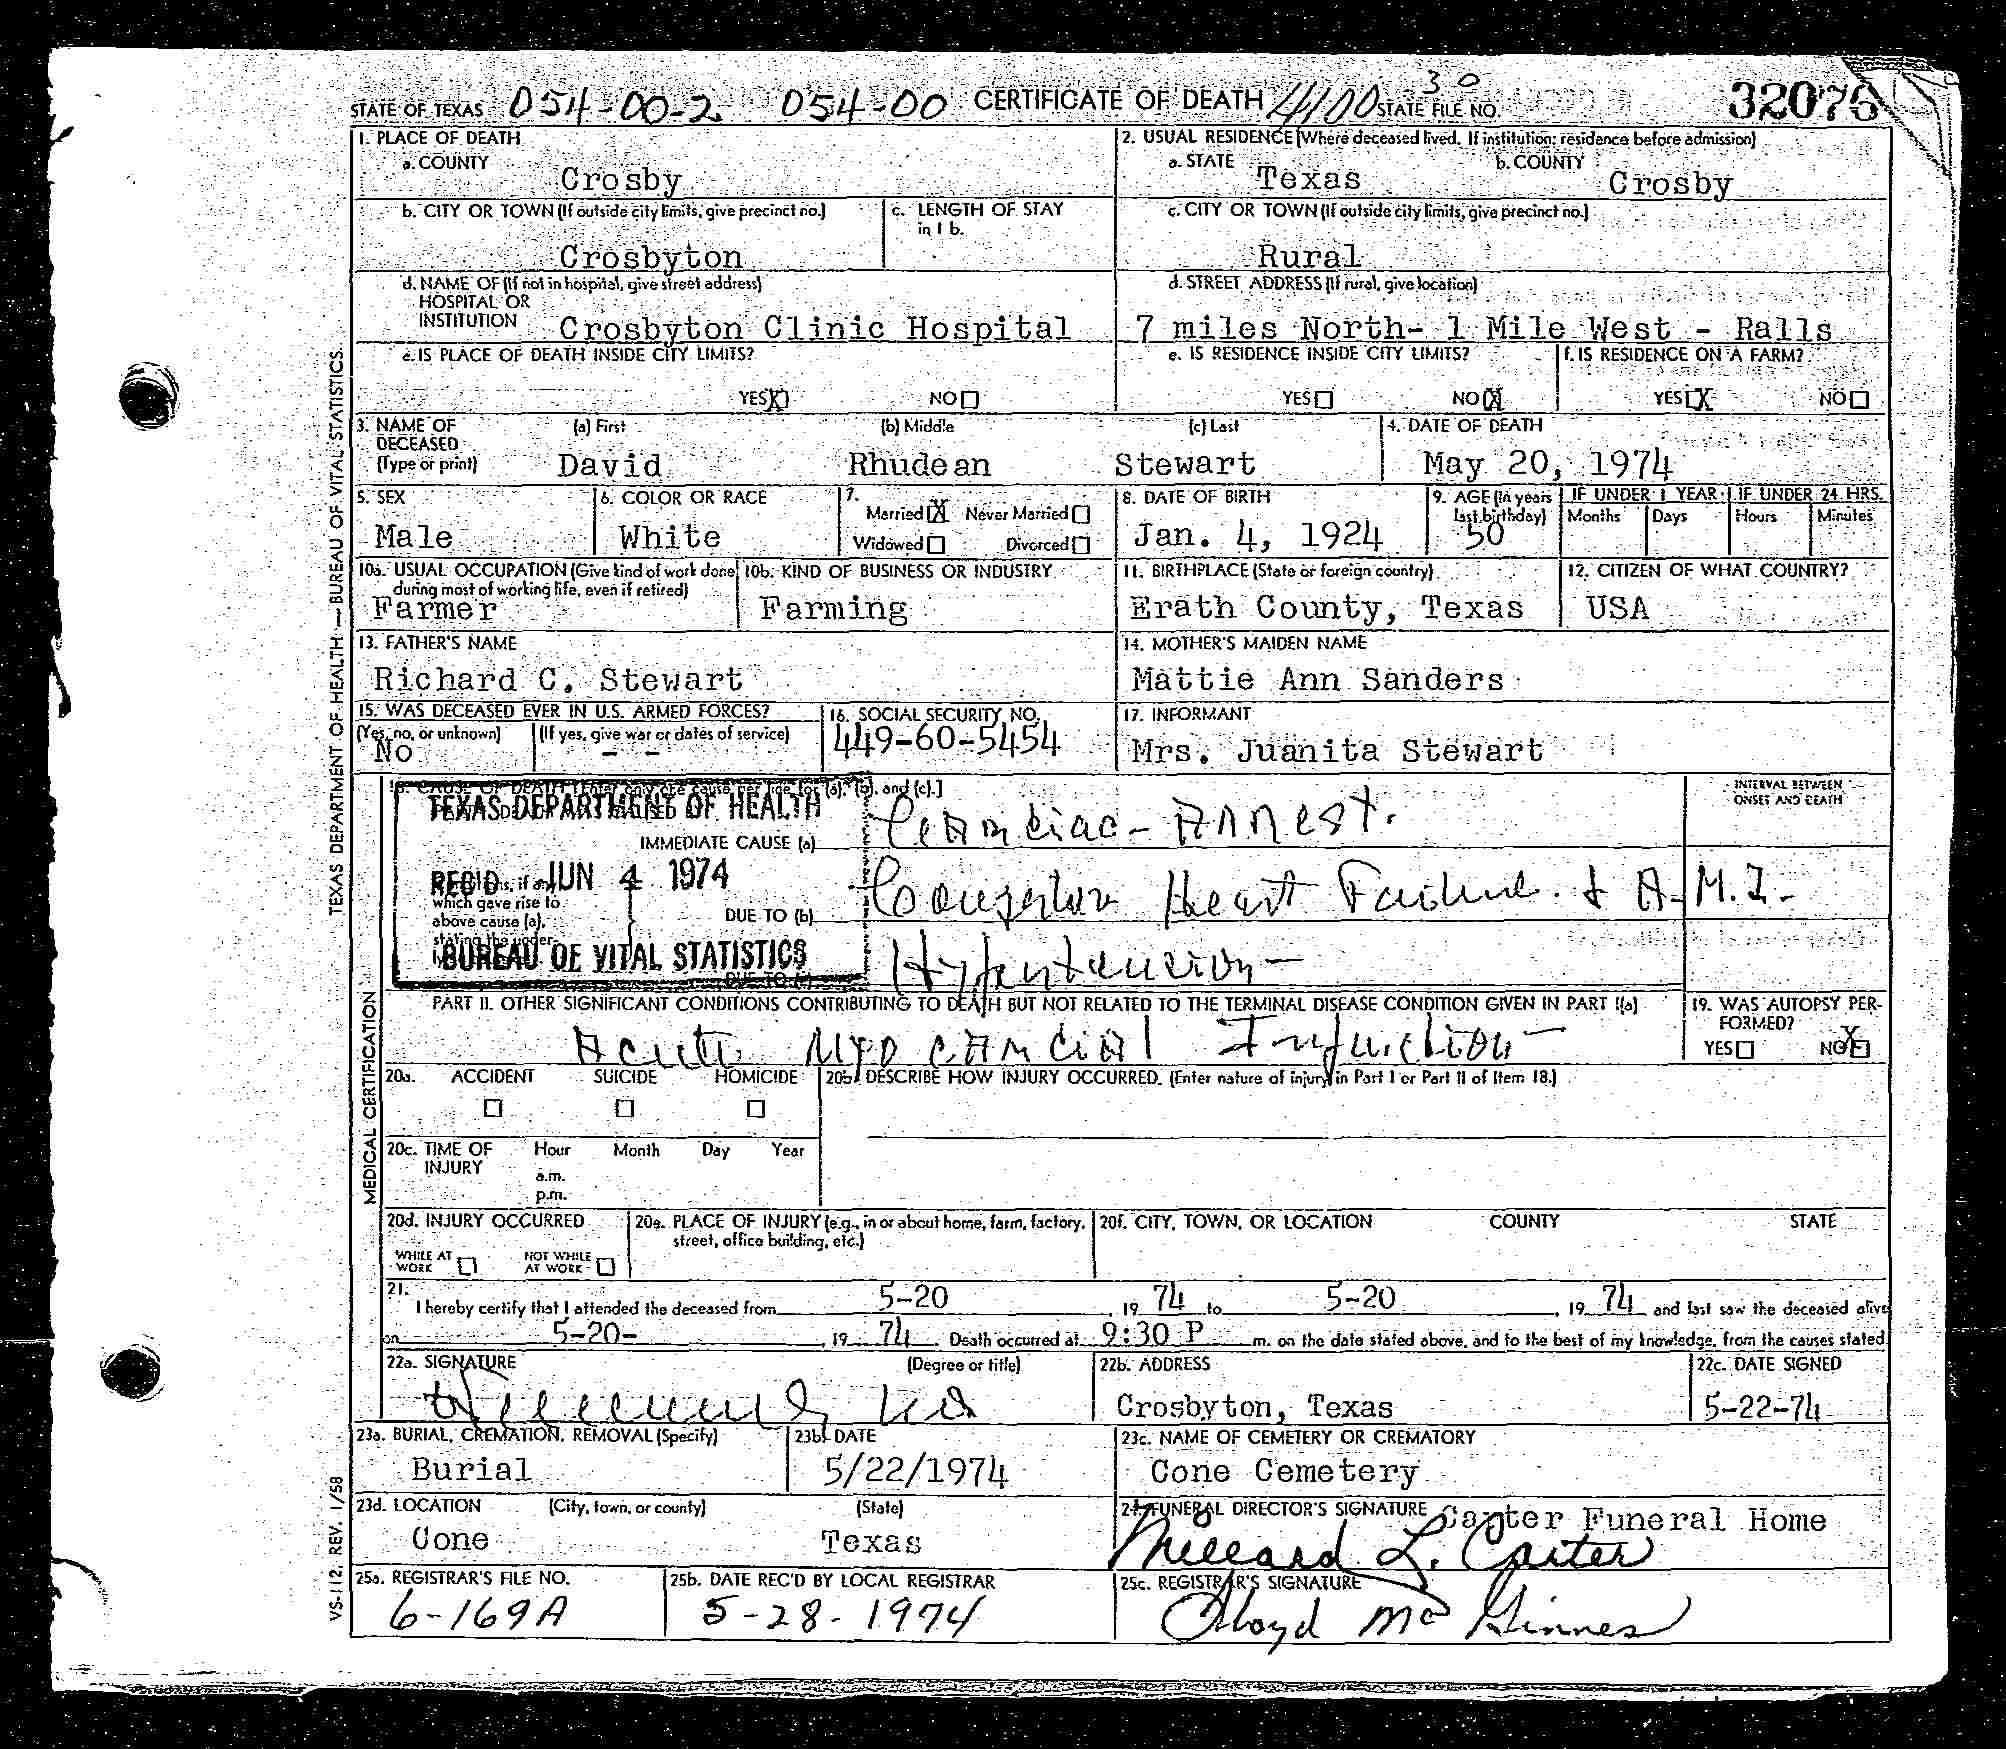 STATE OF TEXAS 054-00-2 054-00 CERTIFICATE OF DEATH 4100 30 STATE FILE NO. 32076
1. PLACE OF DEATH
a. COUNTY
Crosby
2. USUAL RESIDENCE (Where deceased lived. If institution; residence before admission)
a. STATE b. COUNTY
Texas Crosby
b. CITY OR TOWN (If outside city limits, give precinct no.) c. LENGTH OF STAY
in 1 b.
Crosbyton
c. CITY OR TOWN (If outside city limits, give precinct no.)
Rural
d. NAME OF (If not in hospital, give street address)
HOSPITAL OR
INSTITUTION Crosbyton Clinic Hospital
d. STREET ADDRESS (If rural, give location)
7 miles North- 1 Mile West - Ralls
e. IS PLACE OF DEATH INSIDE CITY LIMITS?
YES X NO
e. IS RESIDENCE INSIDE CITY LIMITS?
YES NO X
f. IS RESIDENCE ON A FARM?
YES X NO
3. NAME OF (a) First (b) Middle (c) Last
DECEASED
(Type or print) David Rhudean Stewart
4. DATE OF DEATH
May 20, 1974
5. SEX
Male
6. COLOR OR RACE
White
7.
Married X Never Married
Widowed Divorced
8. DATE OF BIRTH
Jan. 4, 1924
9. AGE (In years
last birthday)
50
IF UNDER 1 YEAR IF UNDER 24 HRS.
Months Days Hours Minutes
10a. USUAL OCCUPATION (Give kind of work done
during most of working life, even if retired)
Farmer
10b. KIND OF BUSINESS OR INDUSTRY
Farming
11. BIRTHPLACE (State or foreign country)
Erath County, Texas
12. CITIZEN OF WHAT COUNTRY?
USA
13. FATHER'S NAME
Richard C. Stewart
14. MOTHER'S MAIDEN NAME
Mattie Ann Sanders
15. WAS DECEASED EVER IN U.S. ARMED FORCES?
(Yes, no, or unknown) (If yes, give war or dates of service)
No - -
16. SOCIAL SECURITY NO.
449-60-5454
17. INFORMANT
Mrs. Juanita Stewart
18. CAUSE OF DEATH [Enter only one cause per line for (a), (b), and (c).]
INTERVAL BETWEEN
ONSET AND DEATH
TEXAS DEPARTMENT OF HEALTH
IMMEDIATE CAUSE (a) Cardiac-Arrest.
REC'D JUN 4 1974
which gave rise to
above cause (a),
stating the under-
DUE TO (b) Congestive Heart Failure. & A.M.I-
BUREAU OF VITAL STATISTICS
DUE TO (c) Hypertension-
PART II. OTHER SIGNIFICANT CONDITIONS CONTRIBUTING TO DEATH BUT NOT RELATED TO THE TERMINAL DISEASE CONDITION GIVEN IN PART I(a)
Acute Myocardial Infarction-
19. WAS AUTOPSY PER-
FORMED?
YES NO X
20a. ACCIDENT SUICIDE HOMICIDE
20b. DESCRIBE HOW INJURY OCCURRED. (Enter nature of injury in Part I or Part II of Item 18.)
20c. TIME OF Hour Month Day Year
INJURY a.m.
p.m.
20d. INJURY OCCURRED
WHILE AT NOT WHILE
WORK AT WORK
20e. PLACE OF INJURY (e.g., in or about home, farm, factory,
street, office building, etc.)
20f. CITY, TOWN, OR LOCATION COUNTY STATE
21.
I hereby certify that I attended the deceased from 5-20 , 19 74 to 5-20 , 19 74 and last saw the deceased alive
on 5-20- , 19 74 . Death occurred at 9:30 P m. on the date stated above, and to the best of my knowledge, from the causes stated
22a. SIGNATURE (Degree or title)
22b. ADDRESS
Crosbyton, Texas
22c. DATE SIGNED
5-22-74
23a. BURIAL, CREMATION, REMOVAL (Specify)
Burial
23b. DATE
5/22/1974
23c. NAME OF CEMETERY OR CREMATORY
Cone Cemetery
23d. LOCATION (City, town, or county) (State)
Cone Texas
24. FUNERAL DIRECTOR'S SIGNATURE Carter Funeral Home
Millard L. Carter
25a. REGISTRAR'S FILE NO.
6-169A
25b. DATE REC'D BY LOCAL REGISTRAR
5-28-1974
25c. REGISTRAR'S SIGNATURE
Floyd McGinnes
TEXAS DEPARTMENT OF HEALTH — BUREAU OF VITAL STATISTICS.
MEDICAL CERTIFICATION
VS-112, REV. 1/58